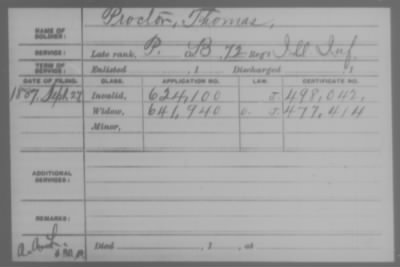 NAME OF SOLDIER: Procton, Thomas,
SERVICE: Late rank, P. Co. B, 72 Reg't Ill. Inf.
TERM OF SERVICE: Enlisted , 1 Discharged , 1
DATE OF FILING. CLASS. APPLICATION NO. LAW. CERTIFICATE NO.
1887, Sept. 27 Invalid, 624,100 J. 498,042,
Widow, 641,940 J. 477,414
Minor,
ADDITIONAL SERVICES:
REMARKS:
Died , 1 , at